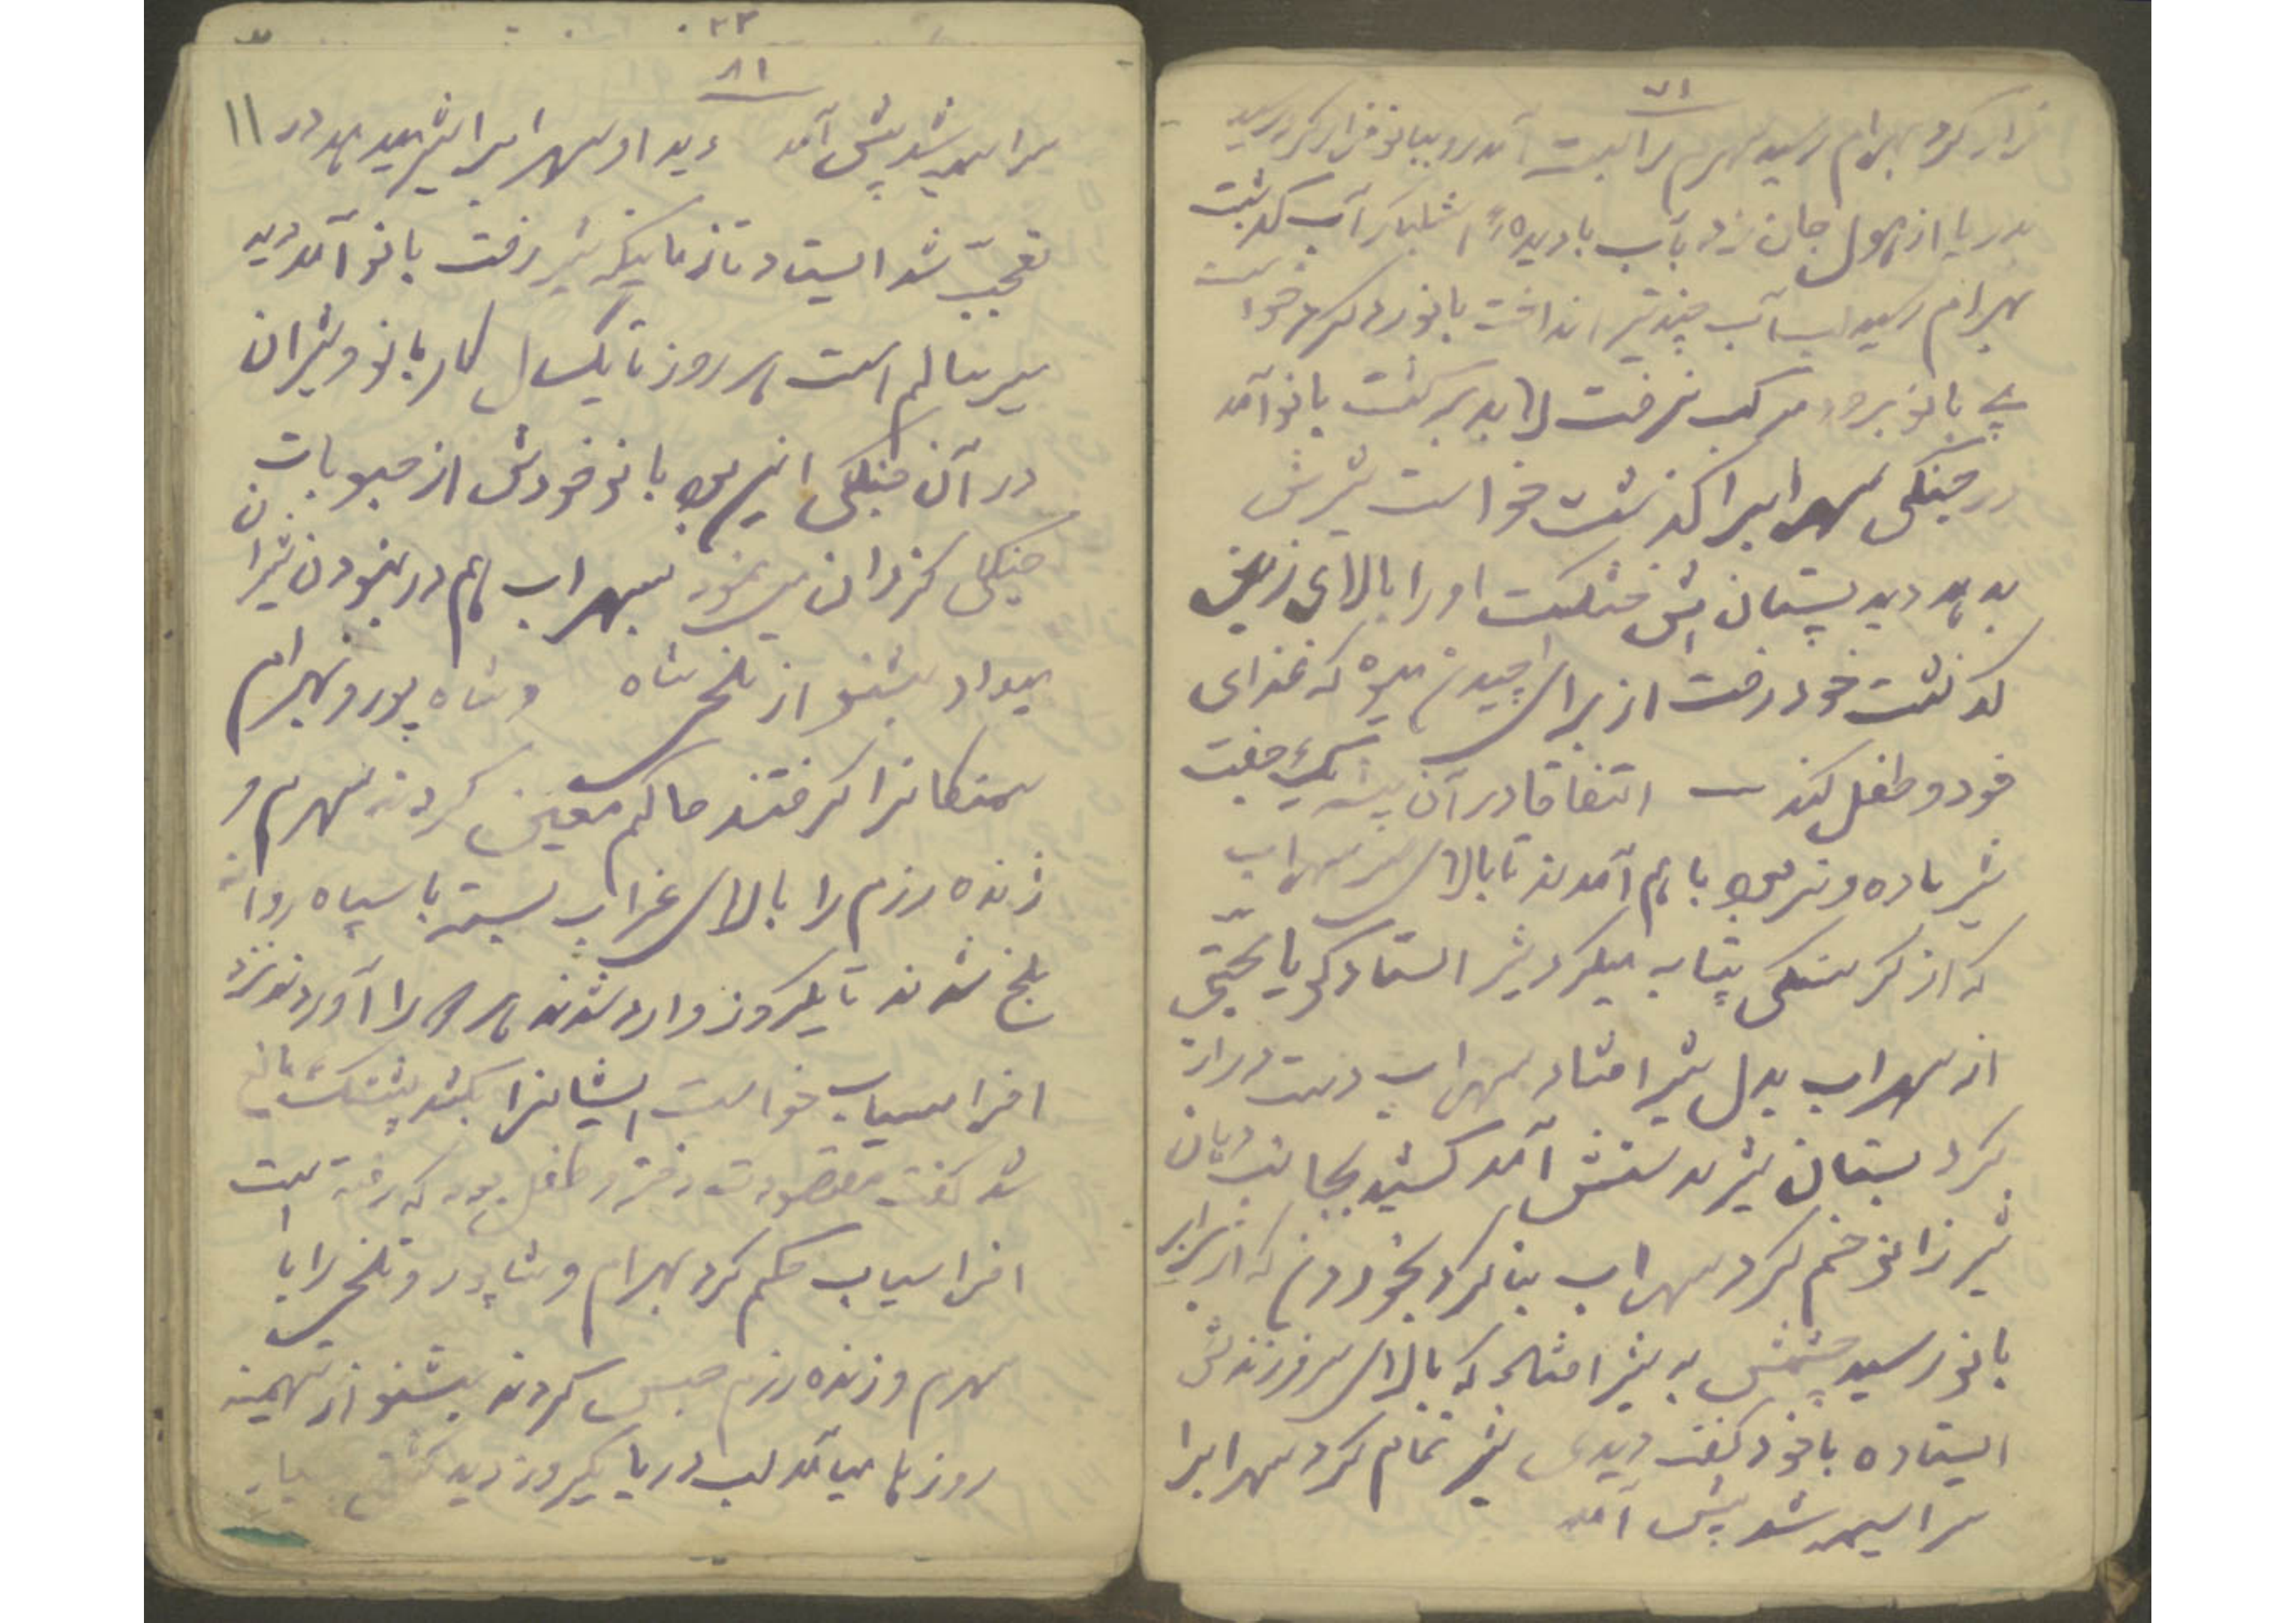 ۷۱
فرار کرد بهرام رسید سهرم را بست آمد رو ببانو فرار کرد رسید
بدریا از هول جان زد بآب با دیده اشکبار آب گذشت
بهرام رسید لب آب چند تیر انداخت بانو رد کرد خواست
پی بانو برود مرکب نرفت لابد برگشت بانو آمد
در جنگل سهرابرا گذاشت خواست شیرش
بدهد دید پستان اش خشکست او را بالای زمین
گذاشت خود رفت از برای چیدن میوه که غذای
خود و طفل کند — اتفاقا در آن بیشه یک جفت
شیر ماده و نر بود با هم آمدند تا بالای سر سهراب
که از گرسنگی بیتابی میکرد شیر ایستاد گویا محبتی
از سهراب بدل شیر افتاد سهراب دست دراز
کرد پستان شیر بدستش آمد کشید بجانب دهان
شیر زانو خم کرد سهراب بنا کرد بخوردن که از برابر
بانو رسید چشمش به شیر افتاد که بالای سر فرزندش
ایستاده با خود گفت دیدی شیر تمام کرد سهرابرا
سراسیمه شد پیش آمد
۸۱
سراسیمه شد پیش آمد دید او سهرابرا شیر میدهد در
تعجب شد ایستاد تا زمانیکه شیر رفت بانو آمد دید
سیر سالم است هر روز تا یکسال کار بانو و شیران
در آن جنگل این بود بانو خودش از حبوبات
جنگل گذران مینمود سهراب هم در نبودن شیران
میداد بشنو از تلخی شاه و شاه پور و بهرام
سمنگانرا گرفتند حاکم معین کردند سهرم و
ژنده رزم را بالای عرابه بسته با سپاه روانه
بلخ شدند تا یکروز وارد شدند هر دو را آوردند نزد
افراسیاب خواست ایشانرا بکشد پشنگ مانع
شد گفت مقصودت دختر و طفل بود که رفته است
افراسیاب حکم کرد بهرام و شاپور و تلخی را با
سهرم و ژنده رزم حبس کردند بشنو از تهمینه
روزها میآمد لب دریا یکروز دید کشتی